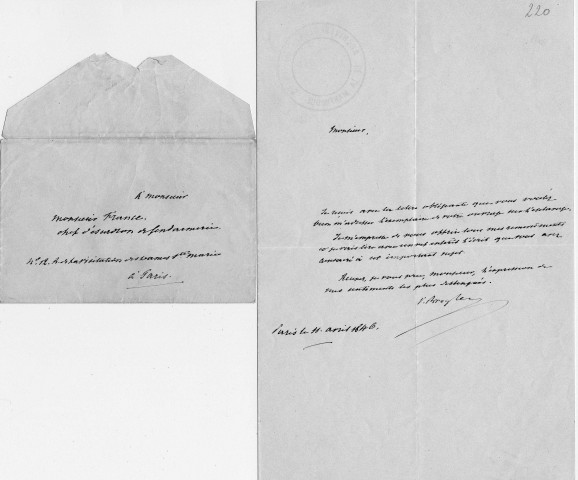 A monsieur
monsieur France.
chef d'escadron de gendarmerie
4. R. de la visitation des dames Ste marie
à Paris.
220
monsieur,
Je reçois avec la lettre obligeante que vous avez
bien m'adresser l'exemplaire de votre ouvrage sur l'esclavage.
Je m'empresse de vous offrir tous mes remerciements
et je vais lire avec intérêt l'écrit que vous avez
consacré à cet important sujet.
Recevez je vous prie, monsieur, l'expression de
mes sentiments les plus distingués.
V. Broglie
Paris le 11 avril 1846.